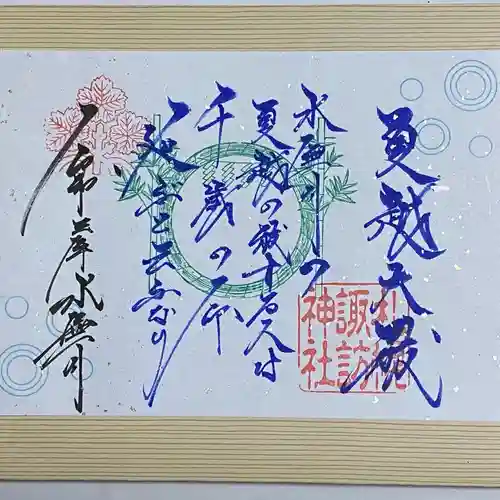 夏越大祓
水無月の
夏越の祓する人は
千歳の命
延ぶと云ふなり
水無月
札幌
諏訪
神社